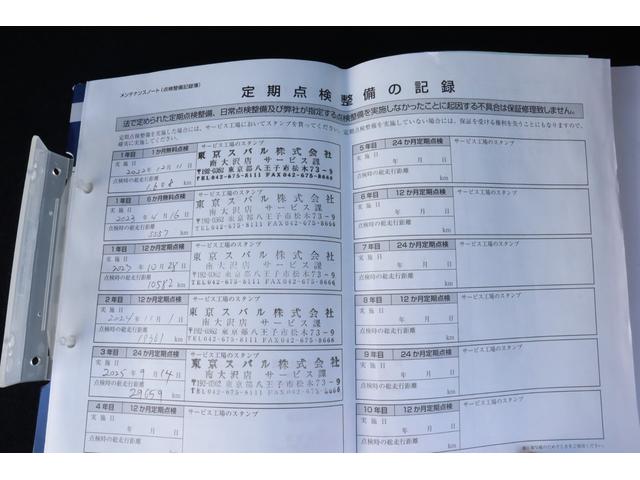 メンテナンスノート(点検整備記録簿)
定期点検整備の記録
法で定められた定期点検整備、日常点検整備及び弊社が指定する点検整備を実施しなかったことに起因する不具合は保証修理致しません。
定期点検整備を実施した場合には、サービス工場においてスタンプを貰ってください。定期点検整備を実施していない場合は、保証を受ける権利を失うことにもなりますので、
確実に実施してください。
1年目 1か月無料点検 サービス工場のスタンプ
実施日
2022年12月11日
点検時の総走行距離
km
東京スバル株式会社
南大沢店 サービス課
〒192-0362 東京都八王子市松木73-9
TEL042-675-8111 FAX042-675-8666
1年目 6か月無料点検 サービス工場のスタンプ
実施日
2023年4月16日
点検時の総走行距離
5037 km
東京スバル株式会社
南大沢店 サービス課
〒192-0362 東京都八王子市松木73-9
TEL042-675-8111 FAX042-675-8666
1年目 12か月定期点検 サービス工場のスタンプ
実施日
2023年10月28日
点検時の総走行距離
10582 km
東京スバル株式会社
南大沢店 サービス課
〒192-0362 東京都八王子市松木73-9
TEL042-675-8111 FAX042-675-8666
2年目 12か月定期点検 サービス工場のスタンプ
実施日
2024年11月1日
点検時の総走行距離
km
東京スバル株式会社
南大沢店 サービス課
〒192-0362 東京都八王子市松木73-9
TEL042-675-8111 FAX042-675-8666
3年目 24か月定期点検 サービス工場のスタンプ
実施日
2025年9月14日
点検時の総走行距離
29659 km
東京スバル株式会社
南大沢店 サービス課
〒192-0362 東京都八王子市松木73-9
TEL042-675-8111 FAX042-675-8666
4年目 12か月定期点検 サービス工場のスタンプ
実施日
年 月 日
点検時の総走行距離
km
5年目 24か月定期点検 サービス工場のスタンプ
実施日
年 月 日
点検時の総走行距離
km
6年目 12か月定期点検 サービス工場のスタンプ
実施日
年 月 日
点検時の総走行距離
km
7年目 24か月定期点検 サービス工場のスタンプ
実施日
年 月 日
点検時の総走行距離
km
8年目 12か月定期点検 サービス工場のスタンプ
実施日
年 月 日
点検時の総走行距離
km
9年目 24か月定期点検 サービス工場のスタンプ
実施日
年 月 日
点検時の総走行距離
km
10年目 12か月定期点検 サービス工場のスタンプ
実施日
年 月 日
点検時の総走行距離
km